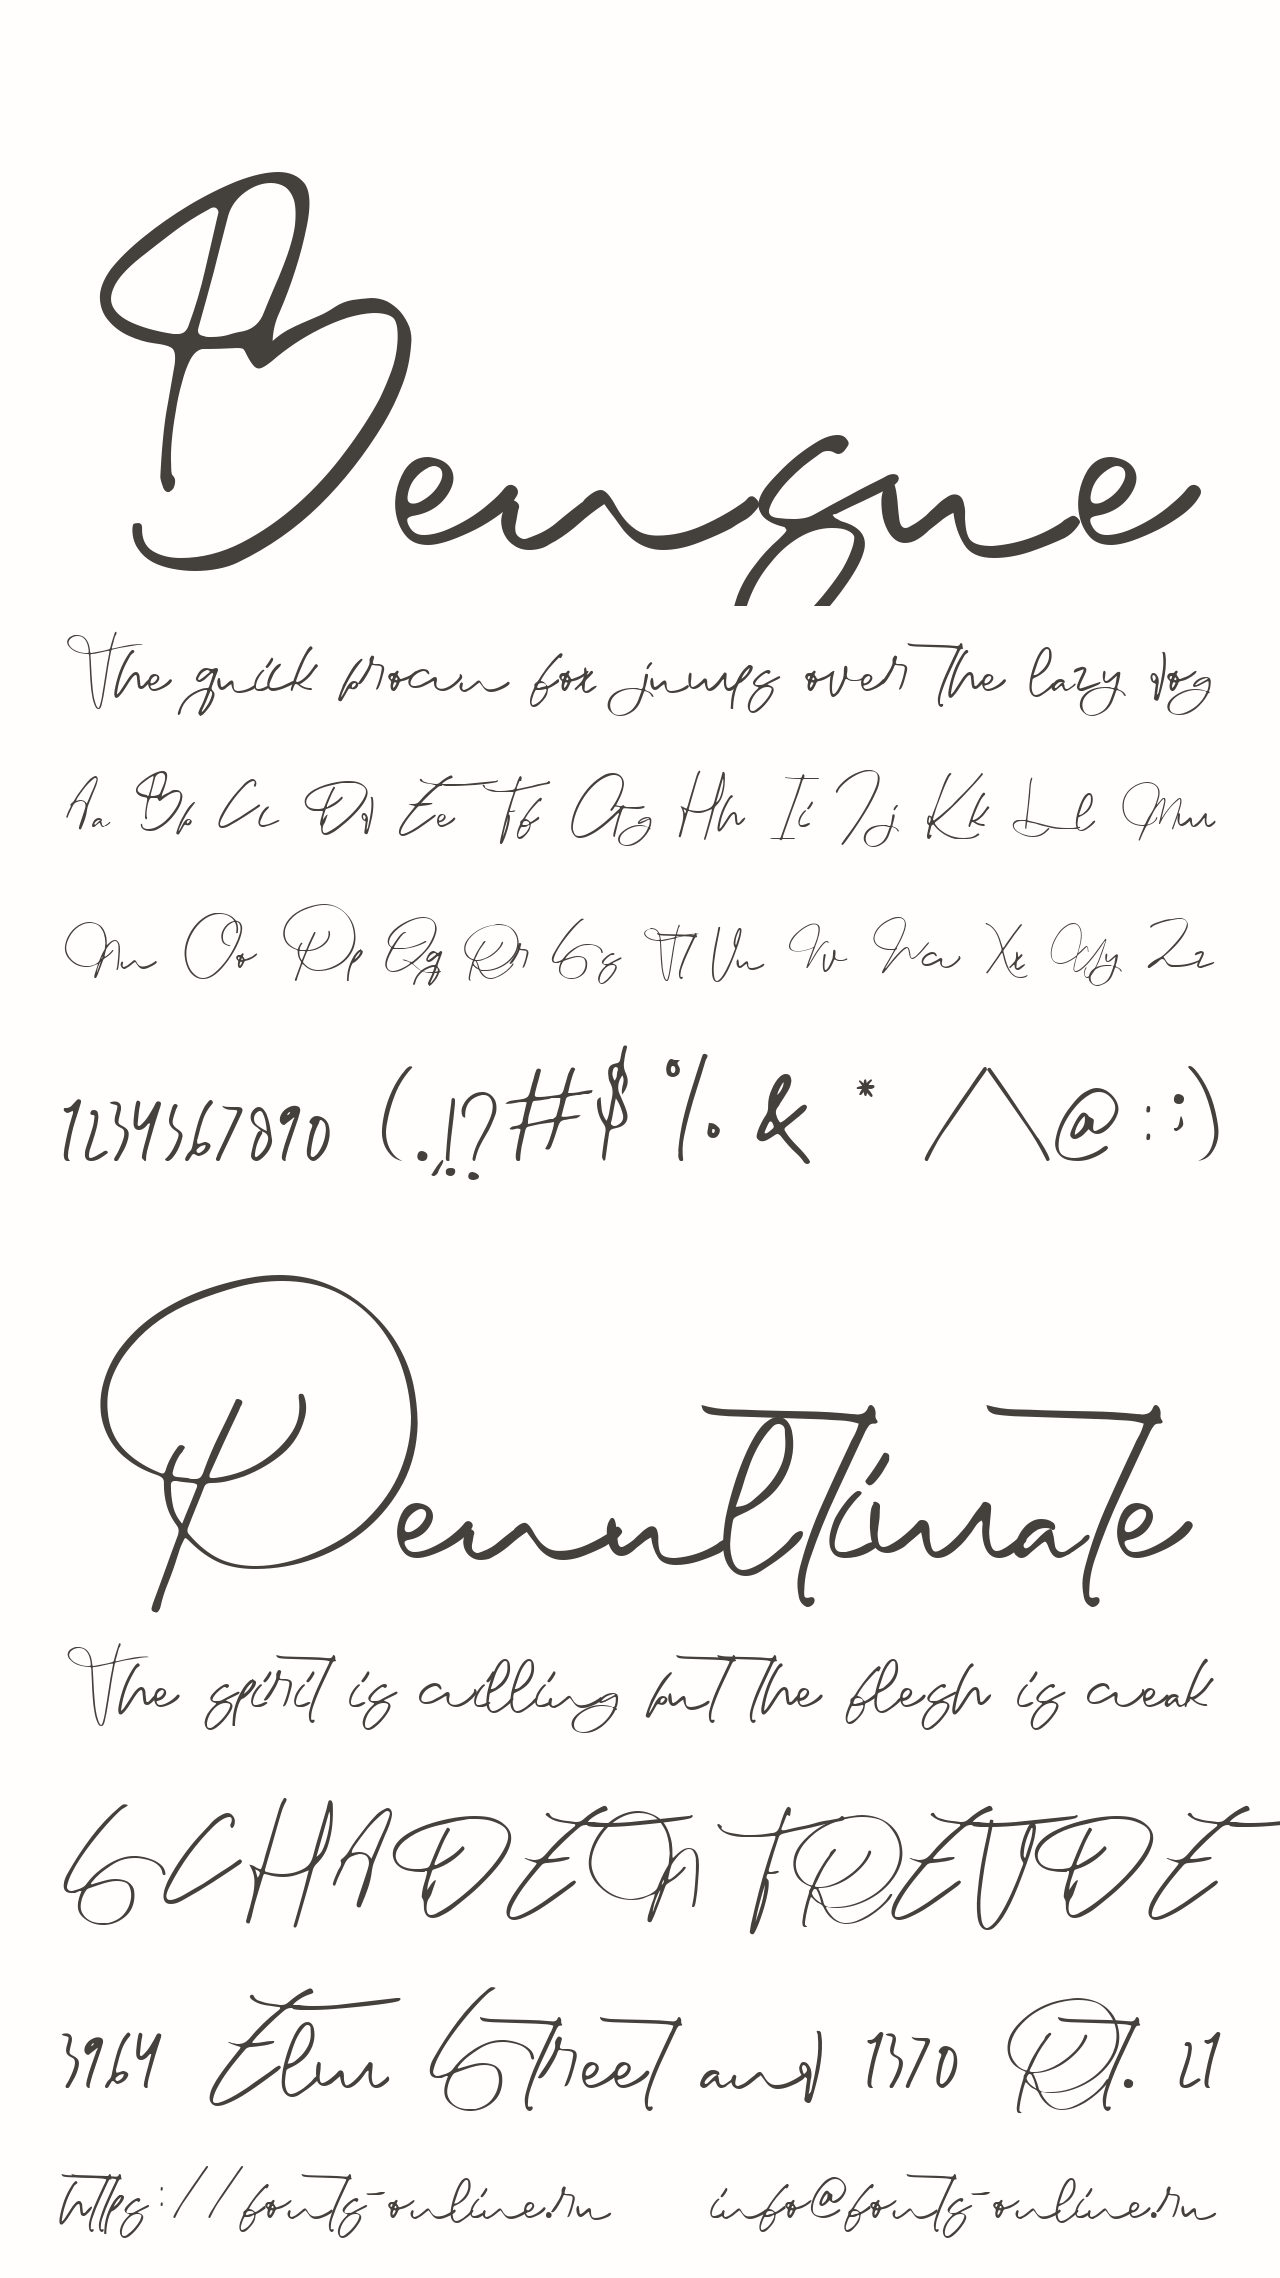 Bensue
The quick brown fox jumps over the lazy dog
Aa Bb Cc Dd Ee Ff Gg Hh Ii Jj Kk Ll Mm
Nn Oo Pp Qq Rr Ss Tt Uu Vv Ww Xx Yy Zz
1234567890 (.,!?#$%&* ^@:;)
Penultimate
The spirit is willing but the flesh is weak
SCHADENFREUDE
3964 Elm Street and 1370 Rt. 21
https://fonts-online.ru info@fonts-online.ru